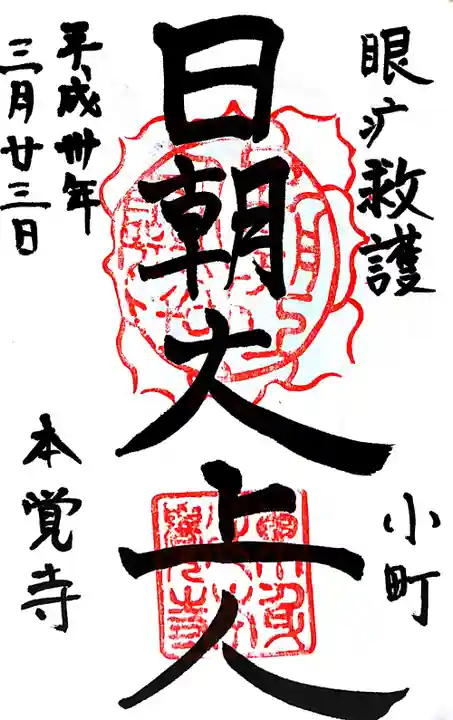 眼疒救護
小町
日朝大上人
平成丗年
三月廿三日
本覚寺